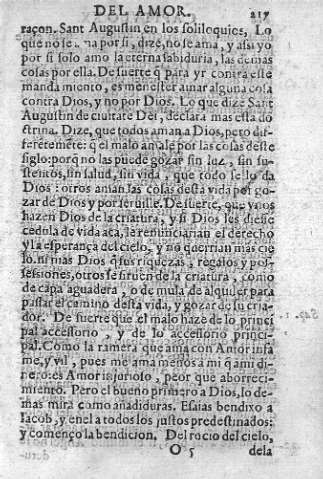 DEL AMOR. 217
raçon. Sant Augustin en los soliloquios, Lo
que no se ama por si, dize, no se ama, y assi yo
por si solo amo la eterna sabiduria, las demas
cosas por ella. De suerte q̃ para yr contra este
mandamiento, es menester amar alguna cosa
contra Dios, y no por Dios. Lo que dize Sant
Augustin de ciuitate Dei, declara mas esta do
ctrina. Dize, que todos aman a Dios, pero dif-
ferētemēte: q̃ el malo amale por las cosas deste
siglo: porq̃ no las puede gozar sin luz, sin su-
stentos, sin salud, sin vida, que todo se lo da
Dios: otros aman las cosas desta vida por go-
zar de Dios y por seruille. De suerte, que vnos
hazen Dios de la criatura, y si Dios les diesse
cedula de vida aca, le renunciarian el derecho
y la esperança del cielo, y no querrian mas cie
lo, ni mas Dios q̃ sus riquezas, regalos y pos-
sessiones, otros se siruen de la criatura, como
de capa aguadera, o de mula de alquiler para
passar el camino desta vida, y gozar de su cria-
dor. De suerte que el malo haze de lo princi
pal accessorio, y de lo accessorio princi-
pal. Como la ramera que ama con Amor infa
me, y vil, pues me ama menos a mi q̃ a mi di-
nero: es Amor injurioso, peor que aborreci-
miento. Pero el bueno primero a Dios, lo de-
mas mira como añadiduras. Esaias bendixo a
Iacob, y en el a todos los justos predestinados:
y començo la bendicion. Del rocio del cielo,
O 5 dela